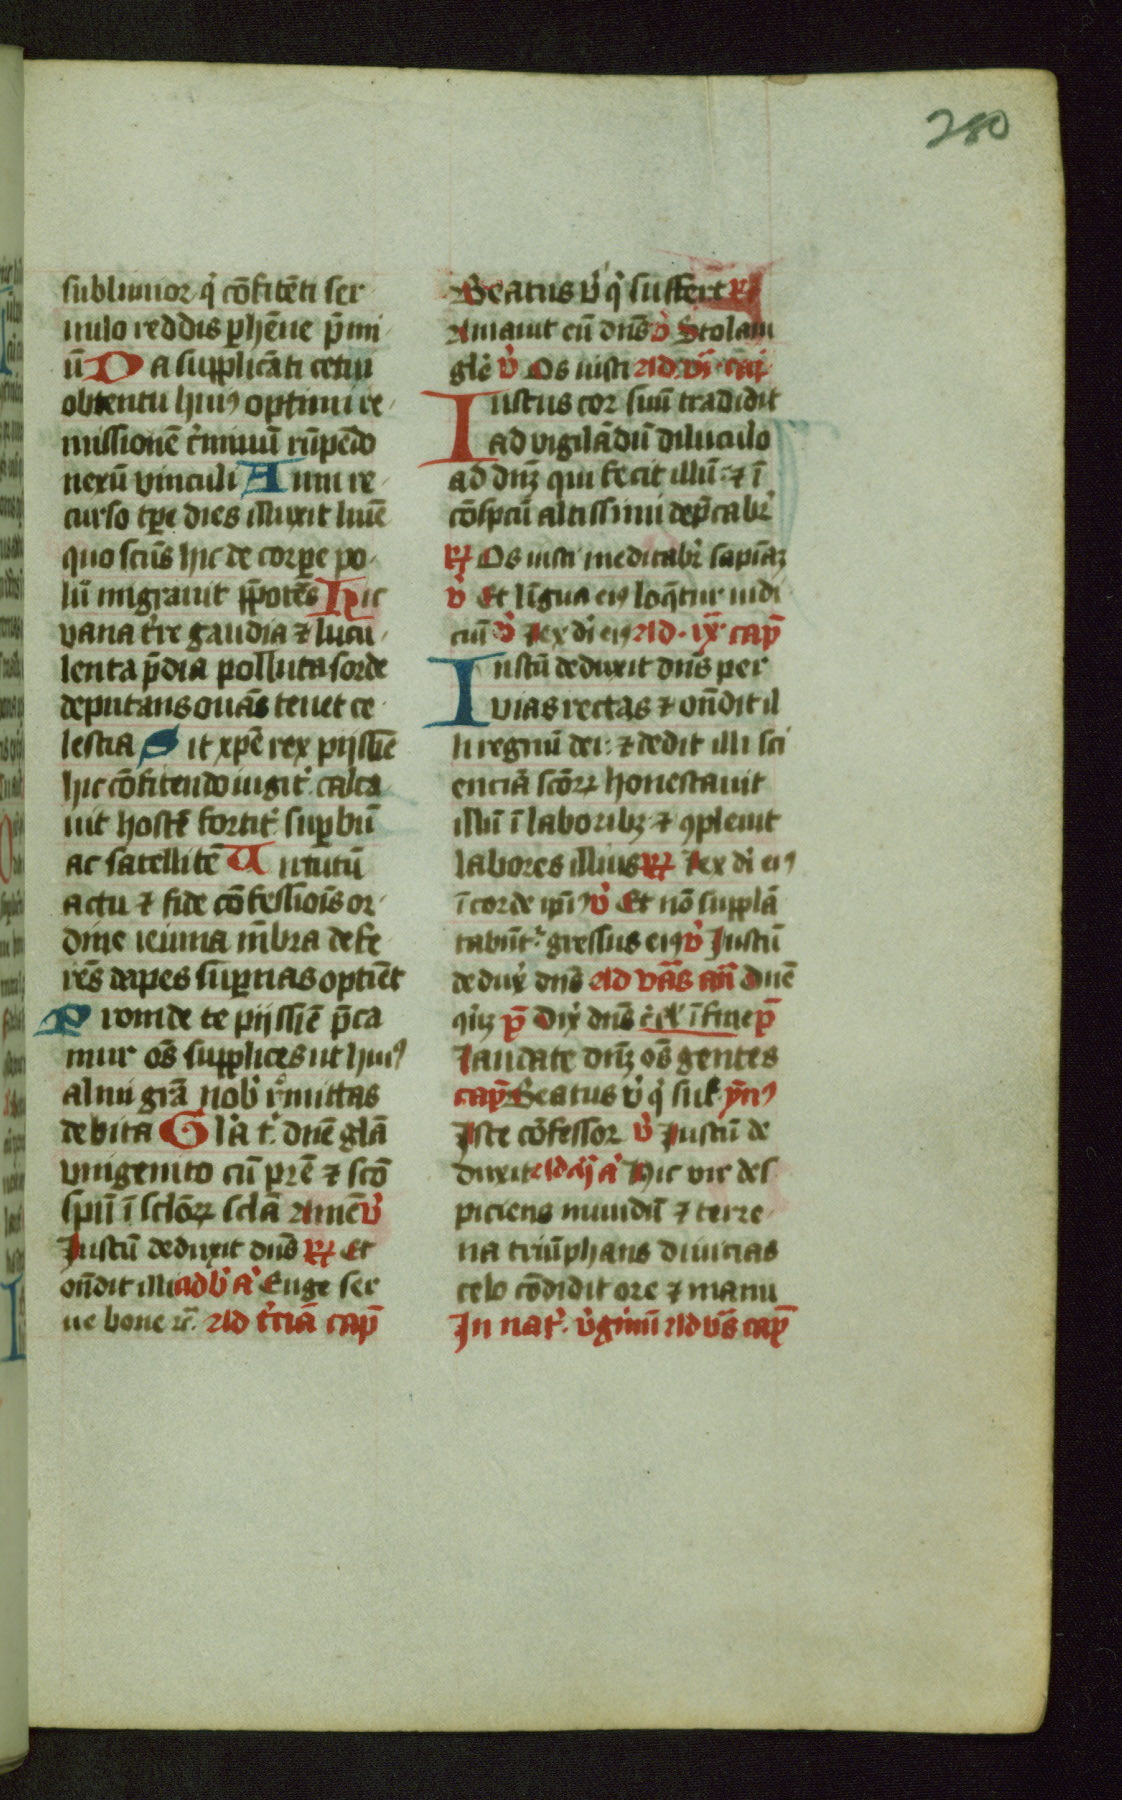 280
sublimior q̇ cōfitēti ser
uulo reddis ꝑhēne p̄mi
ū Da supplicāti cetui
obtentu huiꝰ optimi re
missionē c̓minū rūpēdo
nexū vinculi Anni re
curso tꝑe dies illuxit lumē
quo scūs hic de corꝑe po
lū migrauit p̄potēs Hic
vana t̓re gaudia ⁊ lucu
lenta p̄dia polluta sorde
deputans ouās tenet ce
lestia Sit xp̄e rex pijssīe
hic cōfitendo iugit̓ calca
uit hostē fortit̓ suꝑbū
ac satellitē Uirtutū
actu ⁊ fide cōfessiōis or
dine ieiuna mēbra defe
rēs dapes suꝑnas optinēt
Proinde te pijssīe p̄ca
mur oēs supplices ut huiꝰ
almi grā nob̓ r̓mittas
debita Gl̓a t̓ dnē glā
vnigenito cū prē ⁊ scō
spū ī sclōꝝ sclā Amē v̓
Justū deduxit dn̄s ꝶ Et
on̄dit illi ad b̓ a̓ Euge ser
ue bone ⁊c̄ Ad t̓ciā cap̄
Beatus v̓ q̇ suffert ꝶ
Amauit eū dn̄s v̓ Stolam
glē v̓ Os iusti Ad vi̓ cap̄
Iustus cor suū tradidit
ad vigilādū diluculo
ad dnꝫ qui fecit illū ⁊ ī
cōspcū altissimi dep̄cabr̓
ꝶ Os iusti meditabr̓ sapiāꝫ
v̓ Et lingua eiꝰ loq̄tur iudi
ciū v̓ Lex di̓ eiꝰ Ad ix̓ cap̄
Iustū deduxit dn̄s per
vias rectas ⁊ on̄dit il
li regnū dei ⁊ dedit illi sci
enciā scōꝝ honestauit
illū ī laboribꝫ ⁊ ꝯpleuit
labores illius ꝶ Lex di̓ eiꝰ
ī corde ip̄iꝰ v̓ Et nō supplā
tabūt̓ gressus eiꝰ v̓ Justū
dedux̓ dn̄s Ad vās an̄ dnē
qiꝫ p̄ Dix̓ dn̄s ī fine p̄
Laudate dnꝫ oēs gentes
cap̄ Beatus v̓ q̇ suf. ym̄ꝰ
Iste cōfessor v̓ Justū de
duxit Ad a̓ Hic vir des
piciens mundū ⁊ terre
na triūphans diuicias
celo cōdidit ore ⁊ manu
In nat̓ v̓ginū Ad vās cap̄